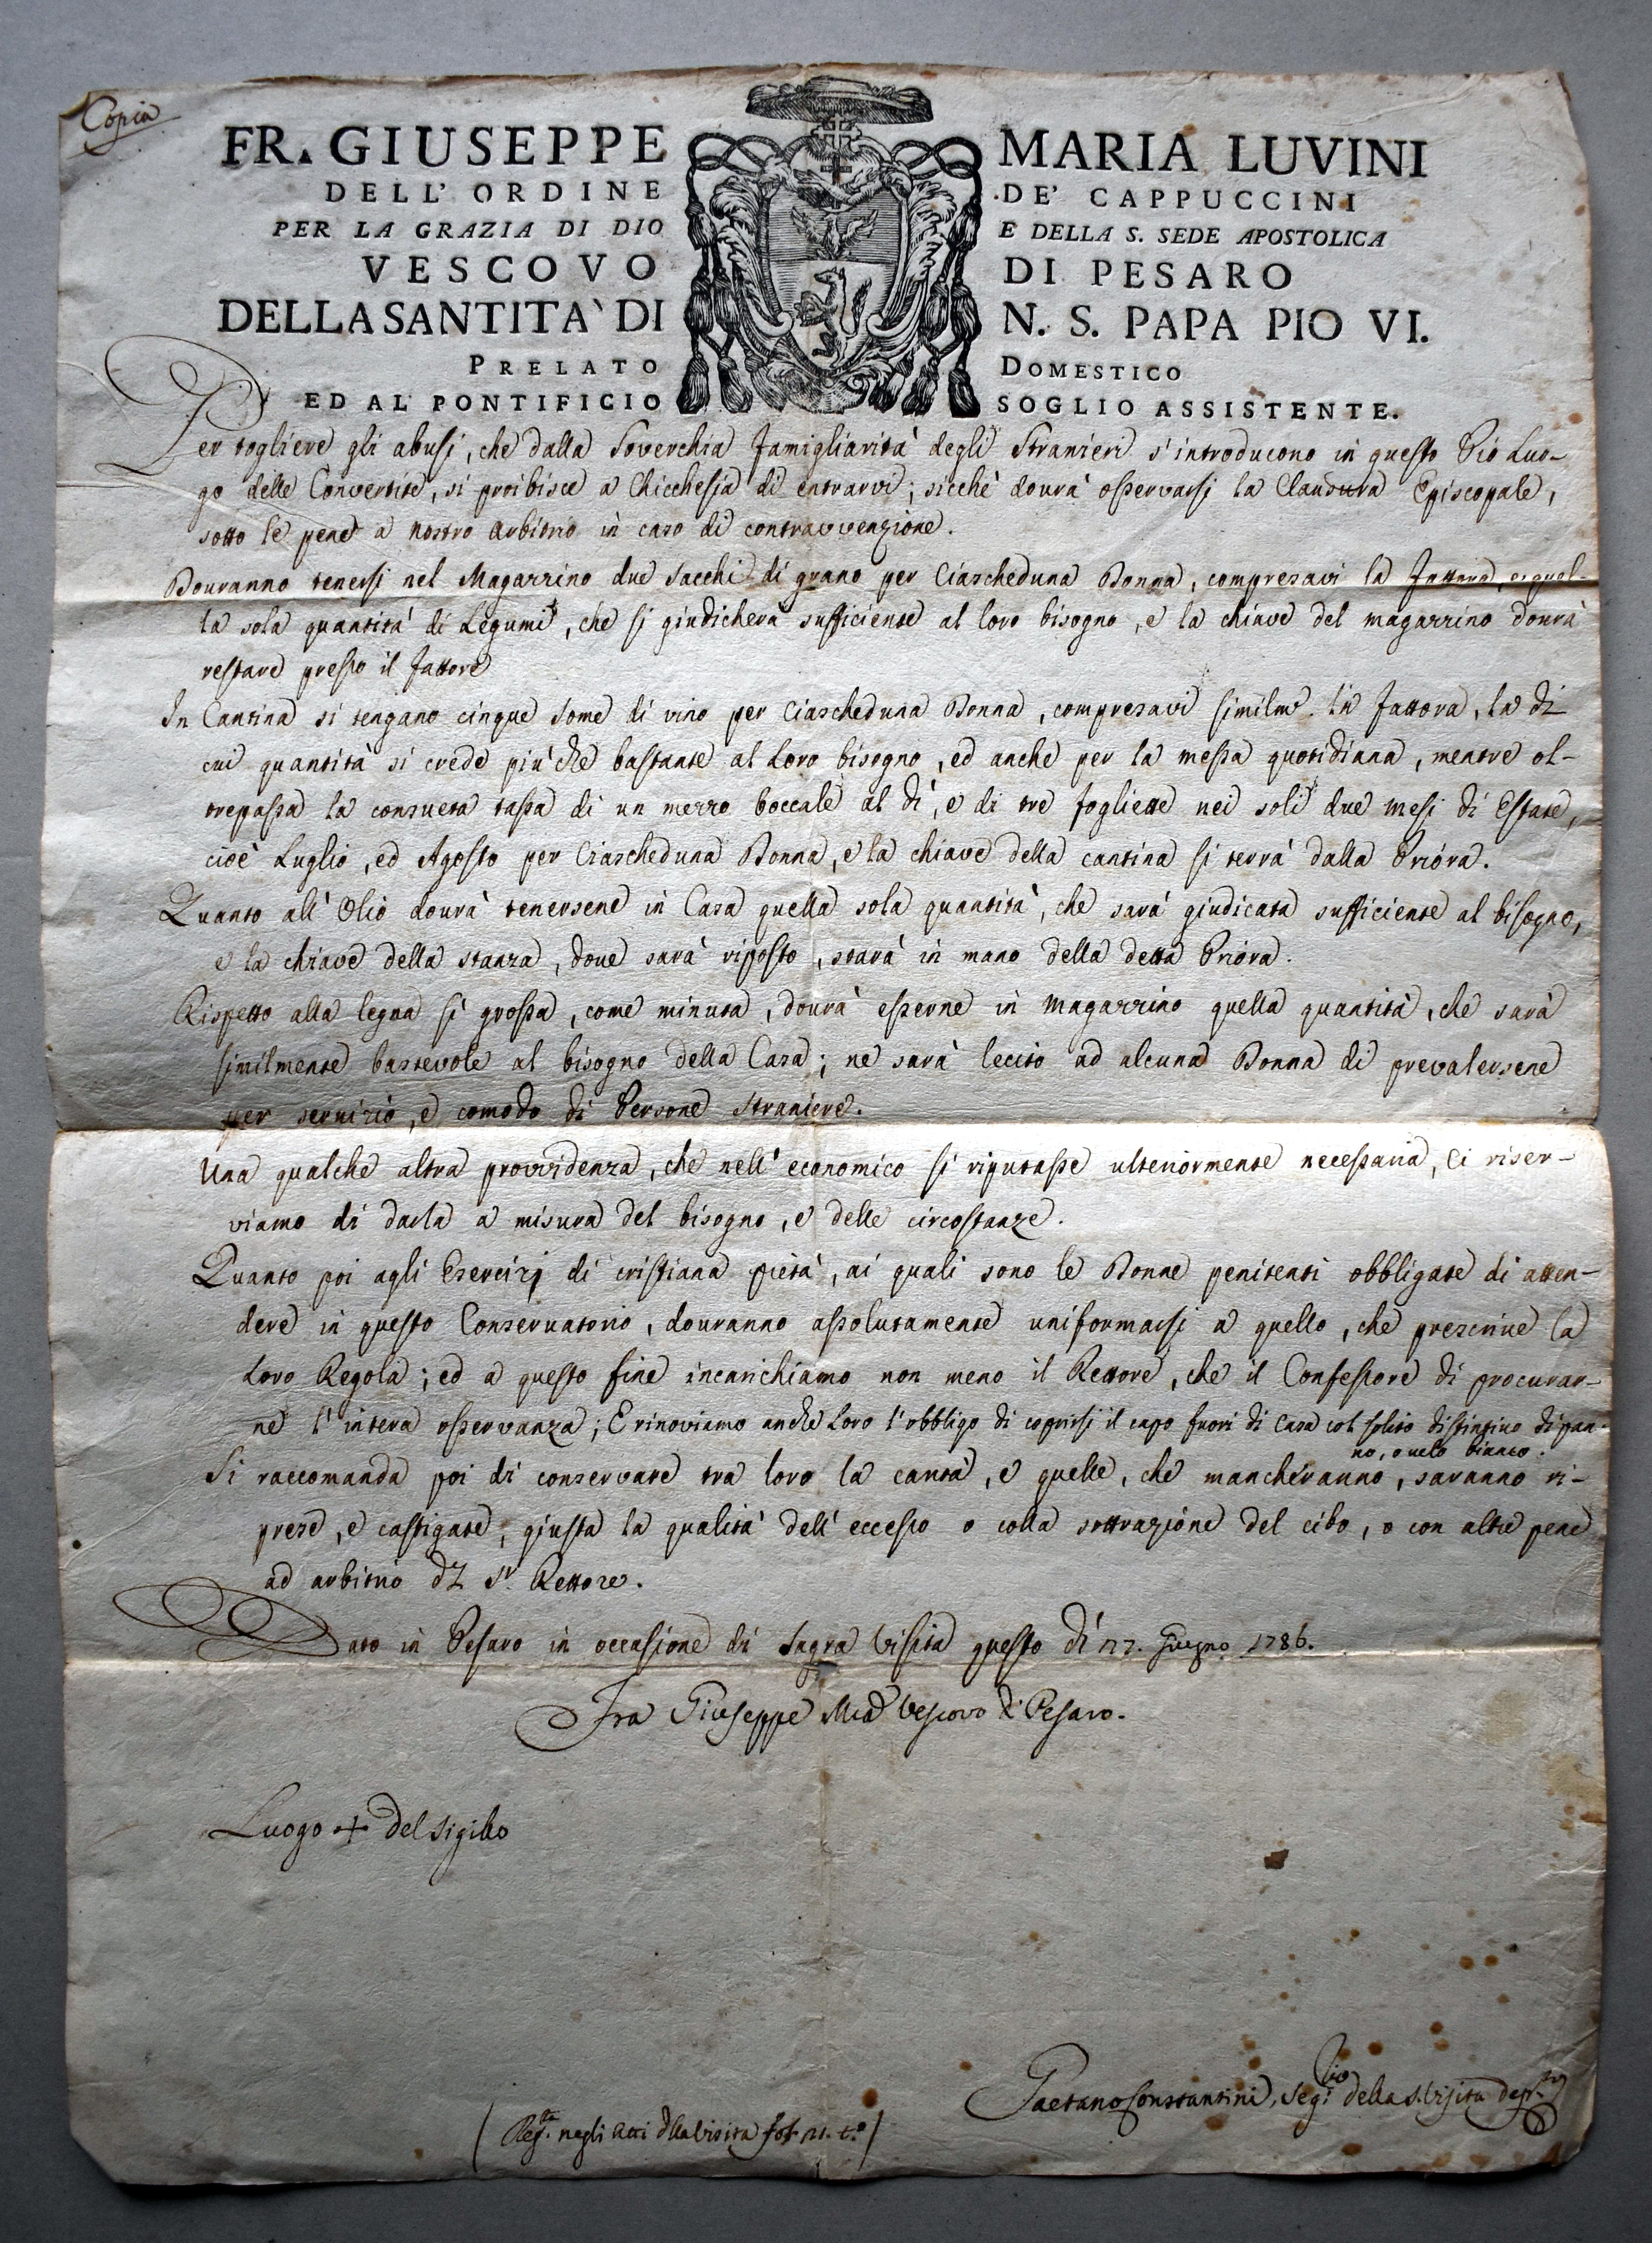 Copia
FR. GIUSEPPE MARIA LUVINI
DELL' ORDINE DE' CAPPUCCINI
PER LA GRAZIA DI DIO E DELLA S. SEDE APOSTOLICA
VESCOVO DI PESARO
DELLA SANTITA' DI N. S. PAPA PIO VI.
PRELATO DOMESTICO
ED AL PONTIFICIO SOGLIO ASSISTENTE.
Per togliere gli abusi, che dalla soverchia famigliarità degli Stranieri s'introducono in questo Pio Luo-
go delle Convertite, si proibisce a chicchesia di entrarvi; sicchè dovrà osservarsi la Clausura Episcopale,
sotto le pene a nostro arbitrio in caso di contravvenzione.
Dovranno tenersi nel Magazzino due sacchi di grano per ciascheduna Donna, compresavi la Fattora, e quel-
la sola quantità di Legumi, che si giudicherà sufficiente al loro bisogno, e la chiave del magazzino dovrà
restare presso il Fattore
In Cantina si tengano cinque some di vino per ciascheduna Donna, compresavi similm.e la Fattora, la di
cui quantità si crede più che bastante al loro bisogno, ed anche per la messa quotidiana, mentre ol-
trepassa la consueta tassa di un mezzo boccale al dì, e di tre fogliette nei soli due mesi di Estate,
cioè Luglio, ed Agosto per ciascheduna Donna, e la chiave della cantina si terrà dalla Priora.
Quanto all' Olio dovrà tenersene in Casa quella sola quantità, che sarà giudicata sufficiente al bisogno,
e la chiave della stanza, dove sarà riposto, starà in mano della detta Priora.
Rispetto alla legna sì grossa, come minuta, dovrà esserne in magazzino quella quantità, che sarà
similmente bastevole al bisogno della Casa; ne sarà lecito ad alcuna Donna di prevalersene
per servizio, e comodo di Persone straniere.
Una qualche altra provvidenza, che nell' economico si riputasse ulteriormente necessaria, ci riser-
viamo di darla a misura del bisogno, e delle circostanze.
Quanto poi agli Esercizj di cristiana pietà, ai quali sono le Donne penitenti obbligate di atten-
dere in questo Conservatorio, dovranno assolutamente uniformarsi a quello, che prescrive la
loro Regola; ed a questo fine incarichiamo non meno il Rettore, che il Confessore di procurar-
ne l'intera osservanza; E rinoviamo anche loro l'obbligo di coprirsi il capo fuori di casa col solito distintivo di pan-
no, o velo bianco.
Si raccomanda poi di conservare tra loro la carità, e quelle, che mancheranno, saranno ri-
prese, e castigate, giusta la qualità dell' eccesso o colla sottrazione del cibo, o con altre pene
ad arbitrio del Sr. Rettore.
Dato in Pesaro in occasione di Sagra Visita questo dì 17. Giugno 1786.
Fra Giuseppe Ma Vescovo di Pesaro.
Luogo + del sigillo
Gaetano Constantini, Segrio della S. Visita dep.to
(Reg.ta negli Atti della Visita fol. 21. t.o)